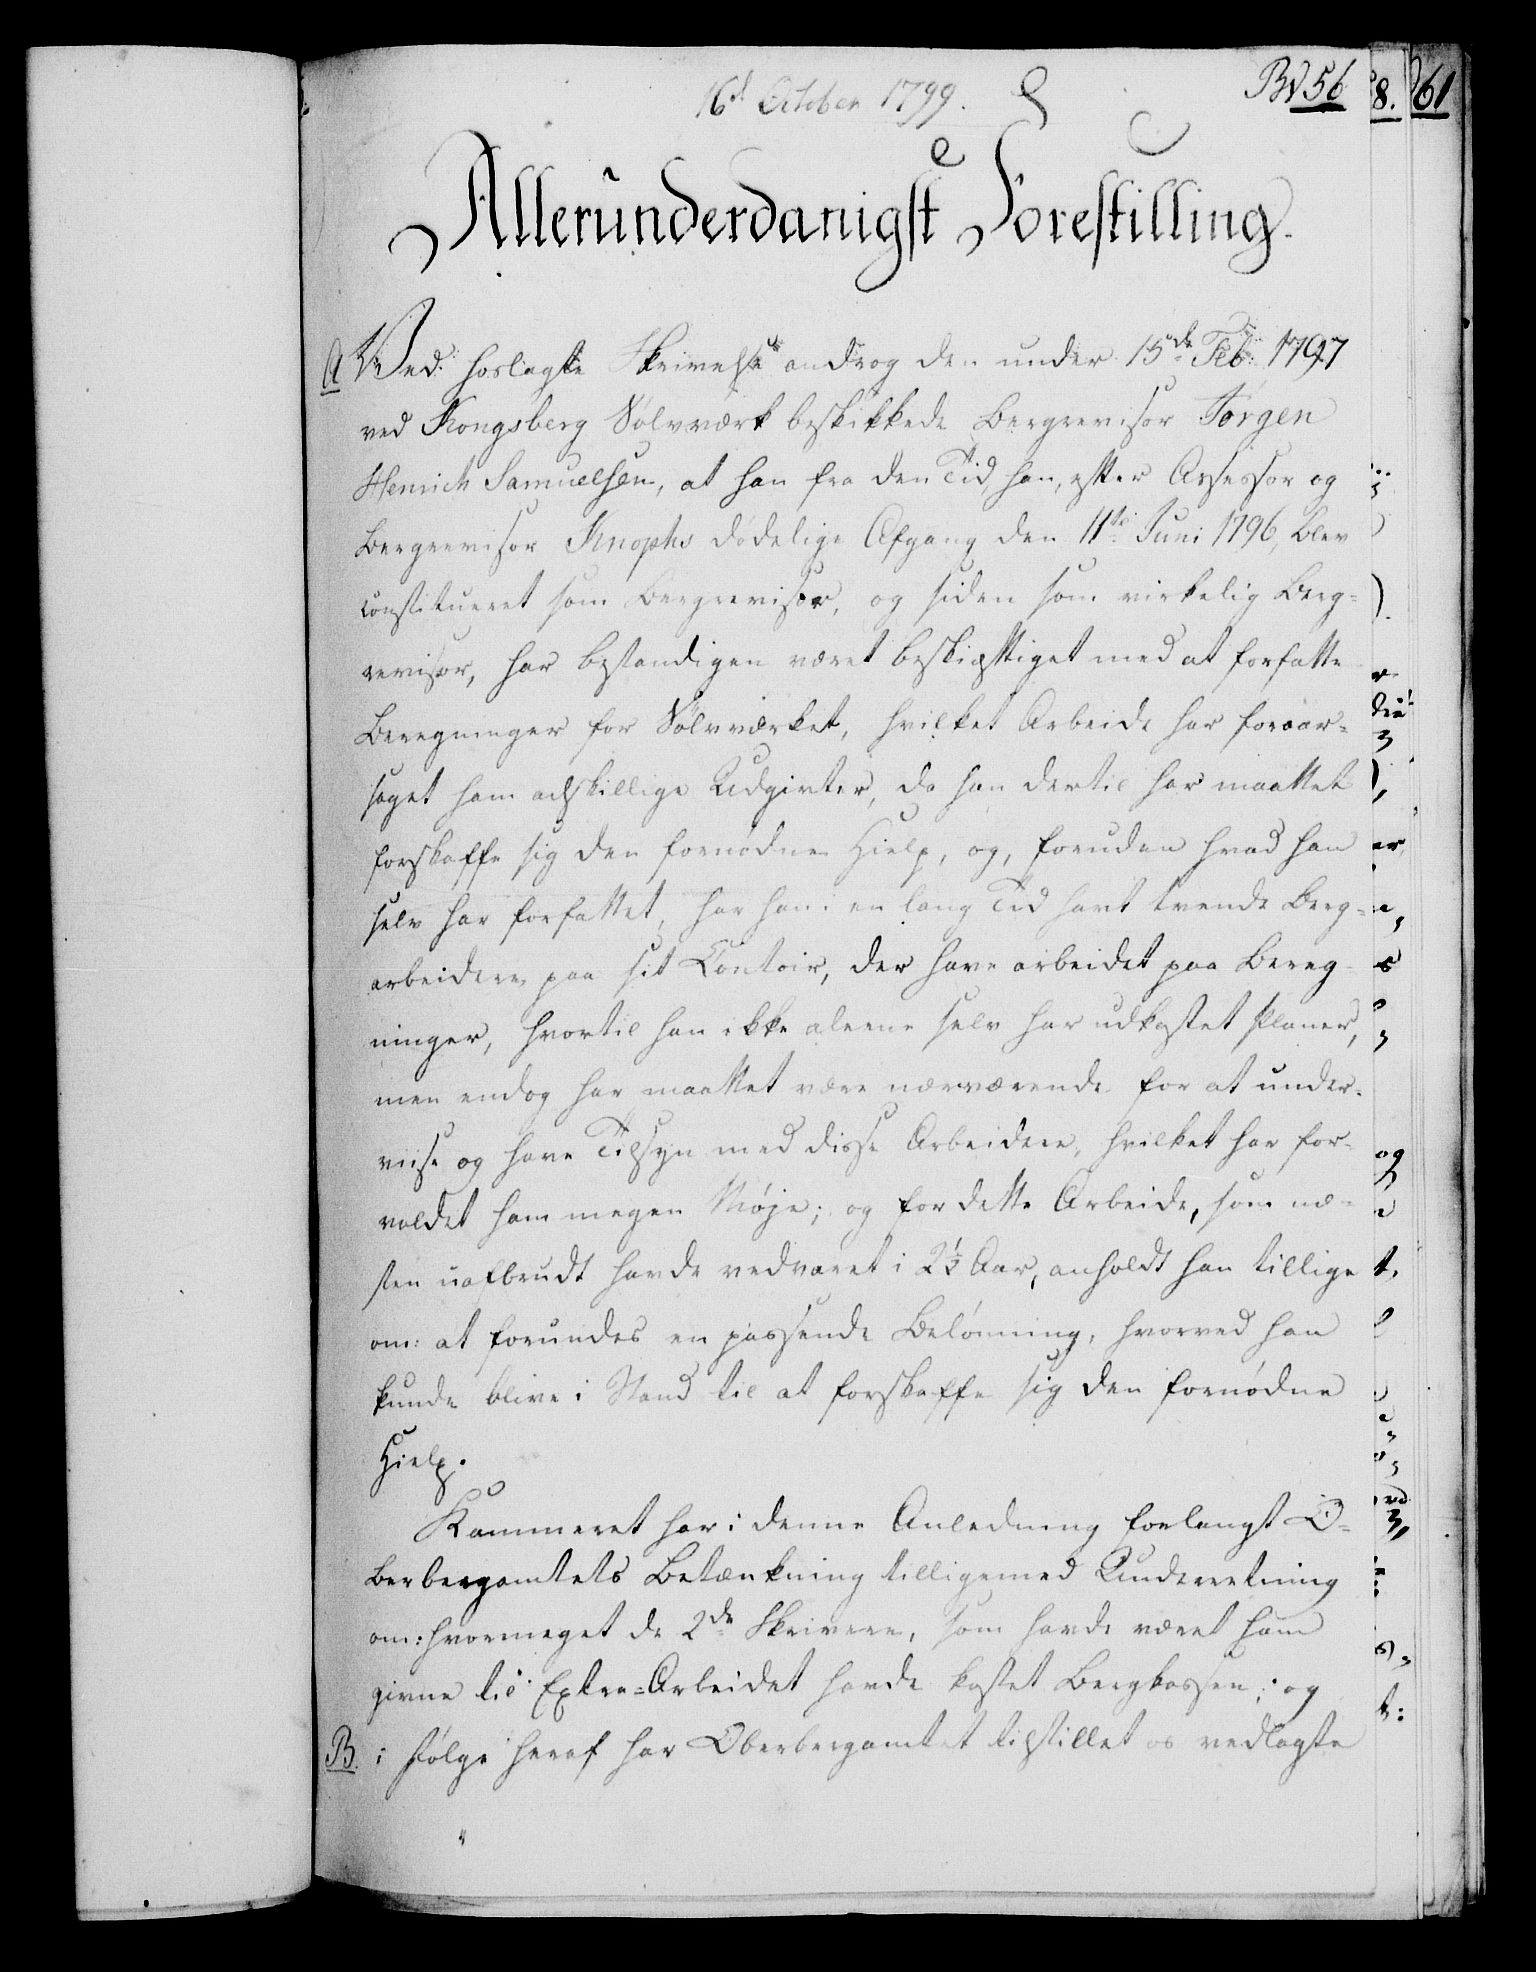 16d October 1799.
Bd 56
8.
61
Allerunderdanigst Forestilling.
A Ved hoslagte Skrivelse androg den under 15de Feb: 1797
ved Kongsberg Sølvværk beskikkede Bergrevisor Jørgen
Henrich Samuelsen, at han fra den Tid han, efter Assessor og
Bergrevisor Knophs dødelige Afgang den 11te Juni 1796, blev
constitueret som Bergrevisor, og siden som virkelig Berg-
revisor, har bestandigen været beskiæftiget med at forfatte
Beregninger for Sølvværket, hvilket Arbeide har foraar-
saget ham adskillige Udgivter, da han dertil har maattet
forskaffe sig den fornødne Hielp, og, foruden hvad han
selv har forfattet, har han i en lang Tid havt tvende Berg-
arbeidere paa sit Contoir, der have arbeidet paa Bereg-
ninger, hvortil han ikke aleene selv har udkastet Planer,
men endog har maattet være nærværende for at under-
viise og have Tilsyn med disse Arbeidere, hvilket har for-
voldet ham megen Møje; og for dette Arbeide, som næ-
sten uafbrudt havde vedvaret i 2½ Aar, anholdt han tillige
om: at forundes en passende Belønning, hvorved han
kunde blive i Stand til at forskaffe sig den fornødne
Hielp.
Kammeret har i denne Anledning forlangt O-
berbergamtets Betænkning tilligemed Underretning
om: hvormeget de 2de Skrivere, som havde været ham
givne til Extra-Arbeidet havde kostet Bergkassen; og
B. i Følge heraf har Oberbergamtet tilstillet os vedlagte